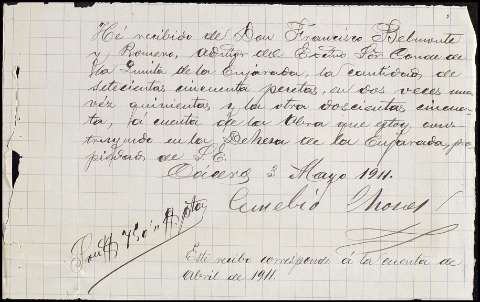 Hé recibido de Don Francisco Belmonte
y Romero, admtor del Excmo Sor Conde de
la Quinta de la Enjarada, la cantidad de
setecientas cincuenta pesetas, en dos veces una
vez quinientas, y la otra doscientas cincuen-
ta, á cuenta de la obra que estoy cons-
truyendo en la Dehesa de la Enjarada, pro-
piedad de S. E.
Cáceres 3 Mayo 1911.
Eusebio
Son # 750 " # ptas
Este recibo corresponde á la cuenta de
abril de 1911.